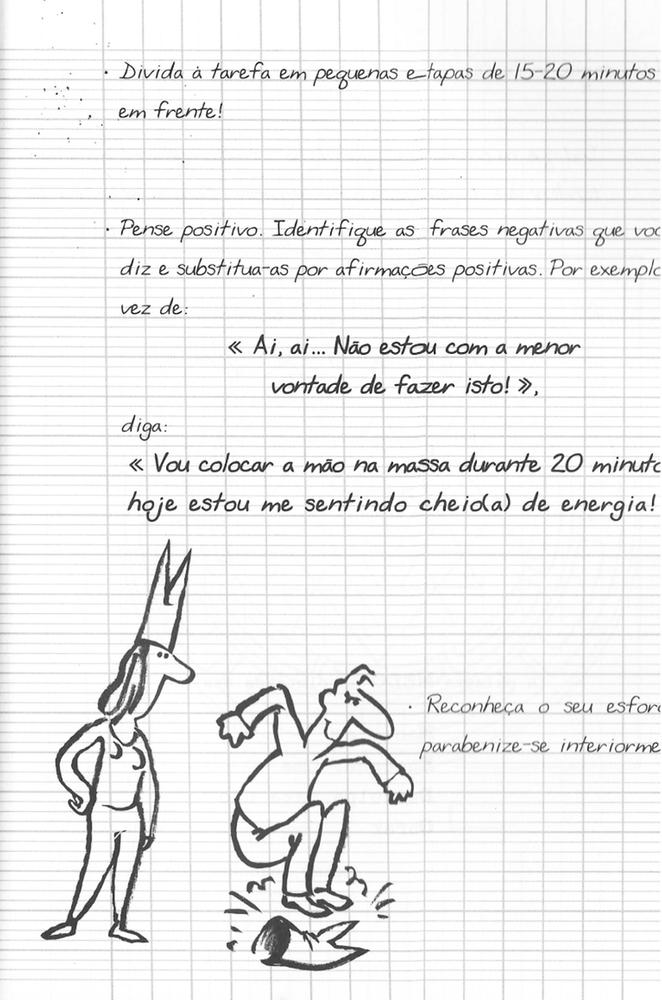 · Divida à tarefa em pequenas etapas de 15-20 minutos
em frente!
· Pense positivo. Identifique as frases negativas que
diz e substitua-as por afirmações positivas. Por
vez de:
« Ai, ai... Não estou com a menor
vontade de fazer isto! »,
diga:
« Vou colocar a mão na massa durante 20
hoje estou me sentindo cheio(a) de energia!
· Reconheça o seu
parabenize-se